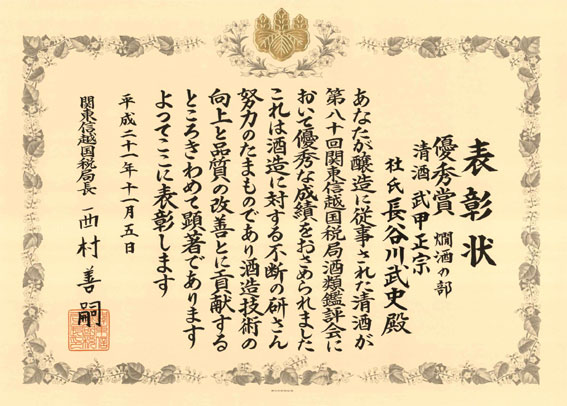 表彰状
優秀賞 燗酒の部
清酒 武甲正宗
杜氏 長谷川武史殿
あなたが醸造に従事された清酒が
第八十回関東信越国税局酒類鑑評会に
おいて優秀な成績をおさめられました
これは酒造に対する不断の研さん
努力のたまものであり酒造技術の
向上と品質の改善とに貢献する
ところきわめて顕著であります
よってここに表彰します
平成二十一年十一月五日
関東信越国税局長 西村善嗣